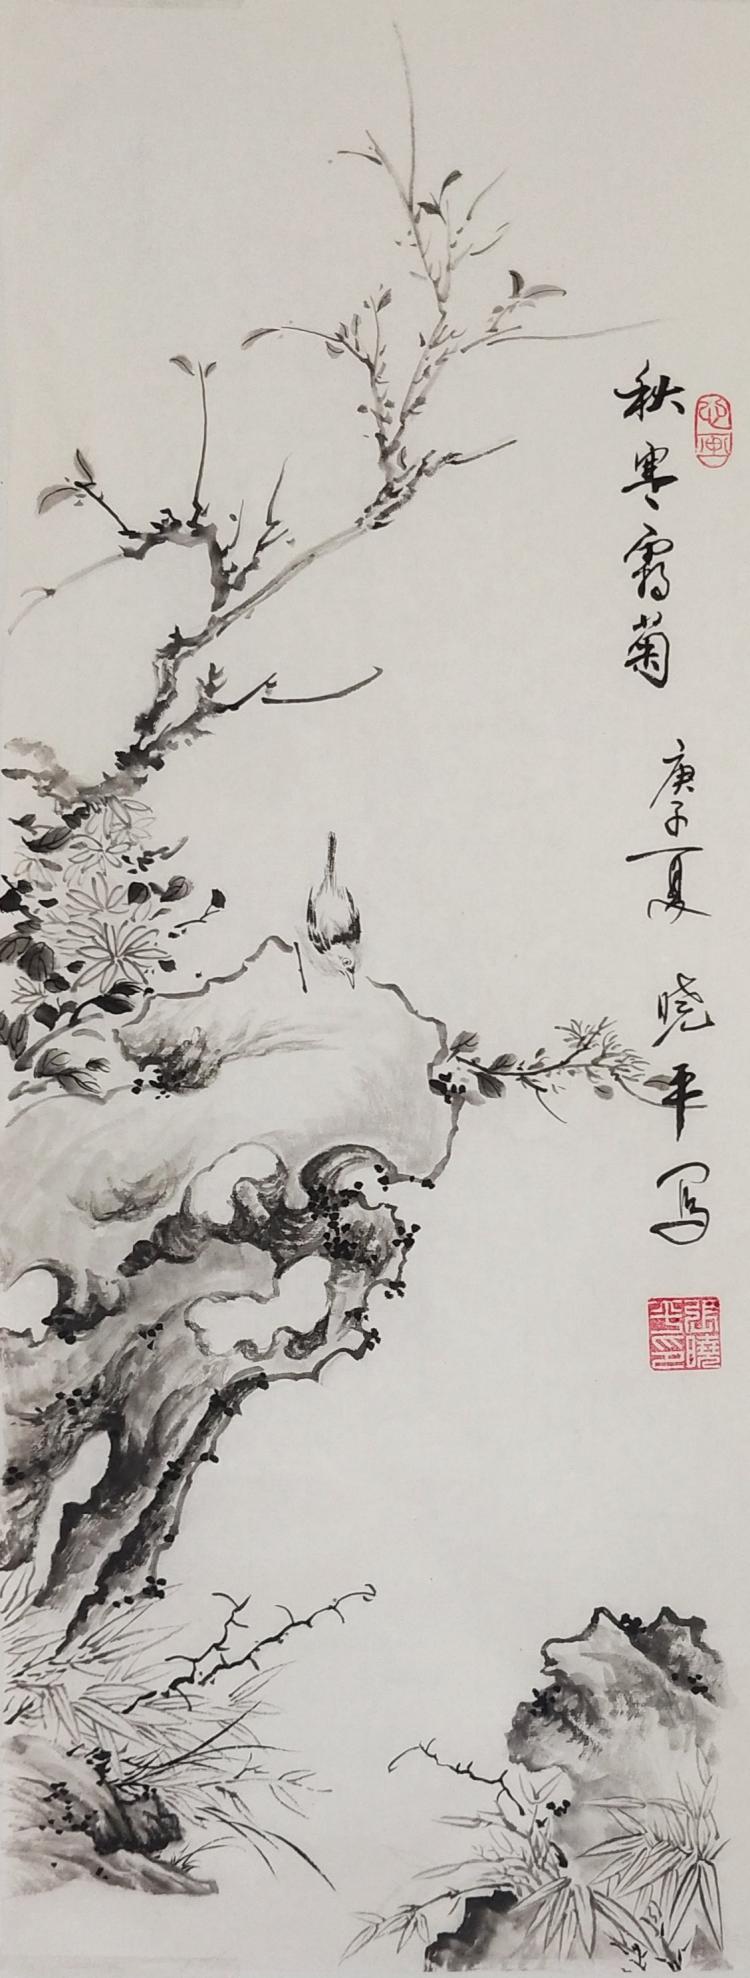 秋寒霜菊
庚子夏 晓平写
心画
张晓平印